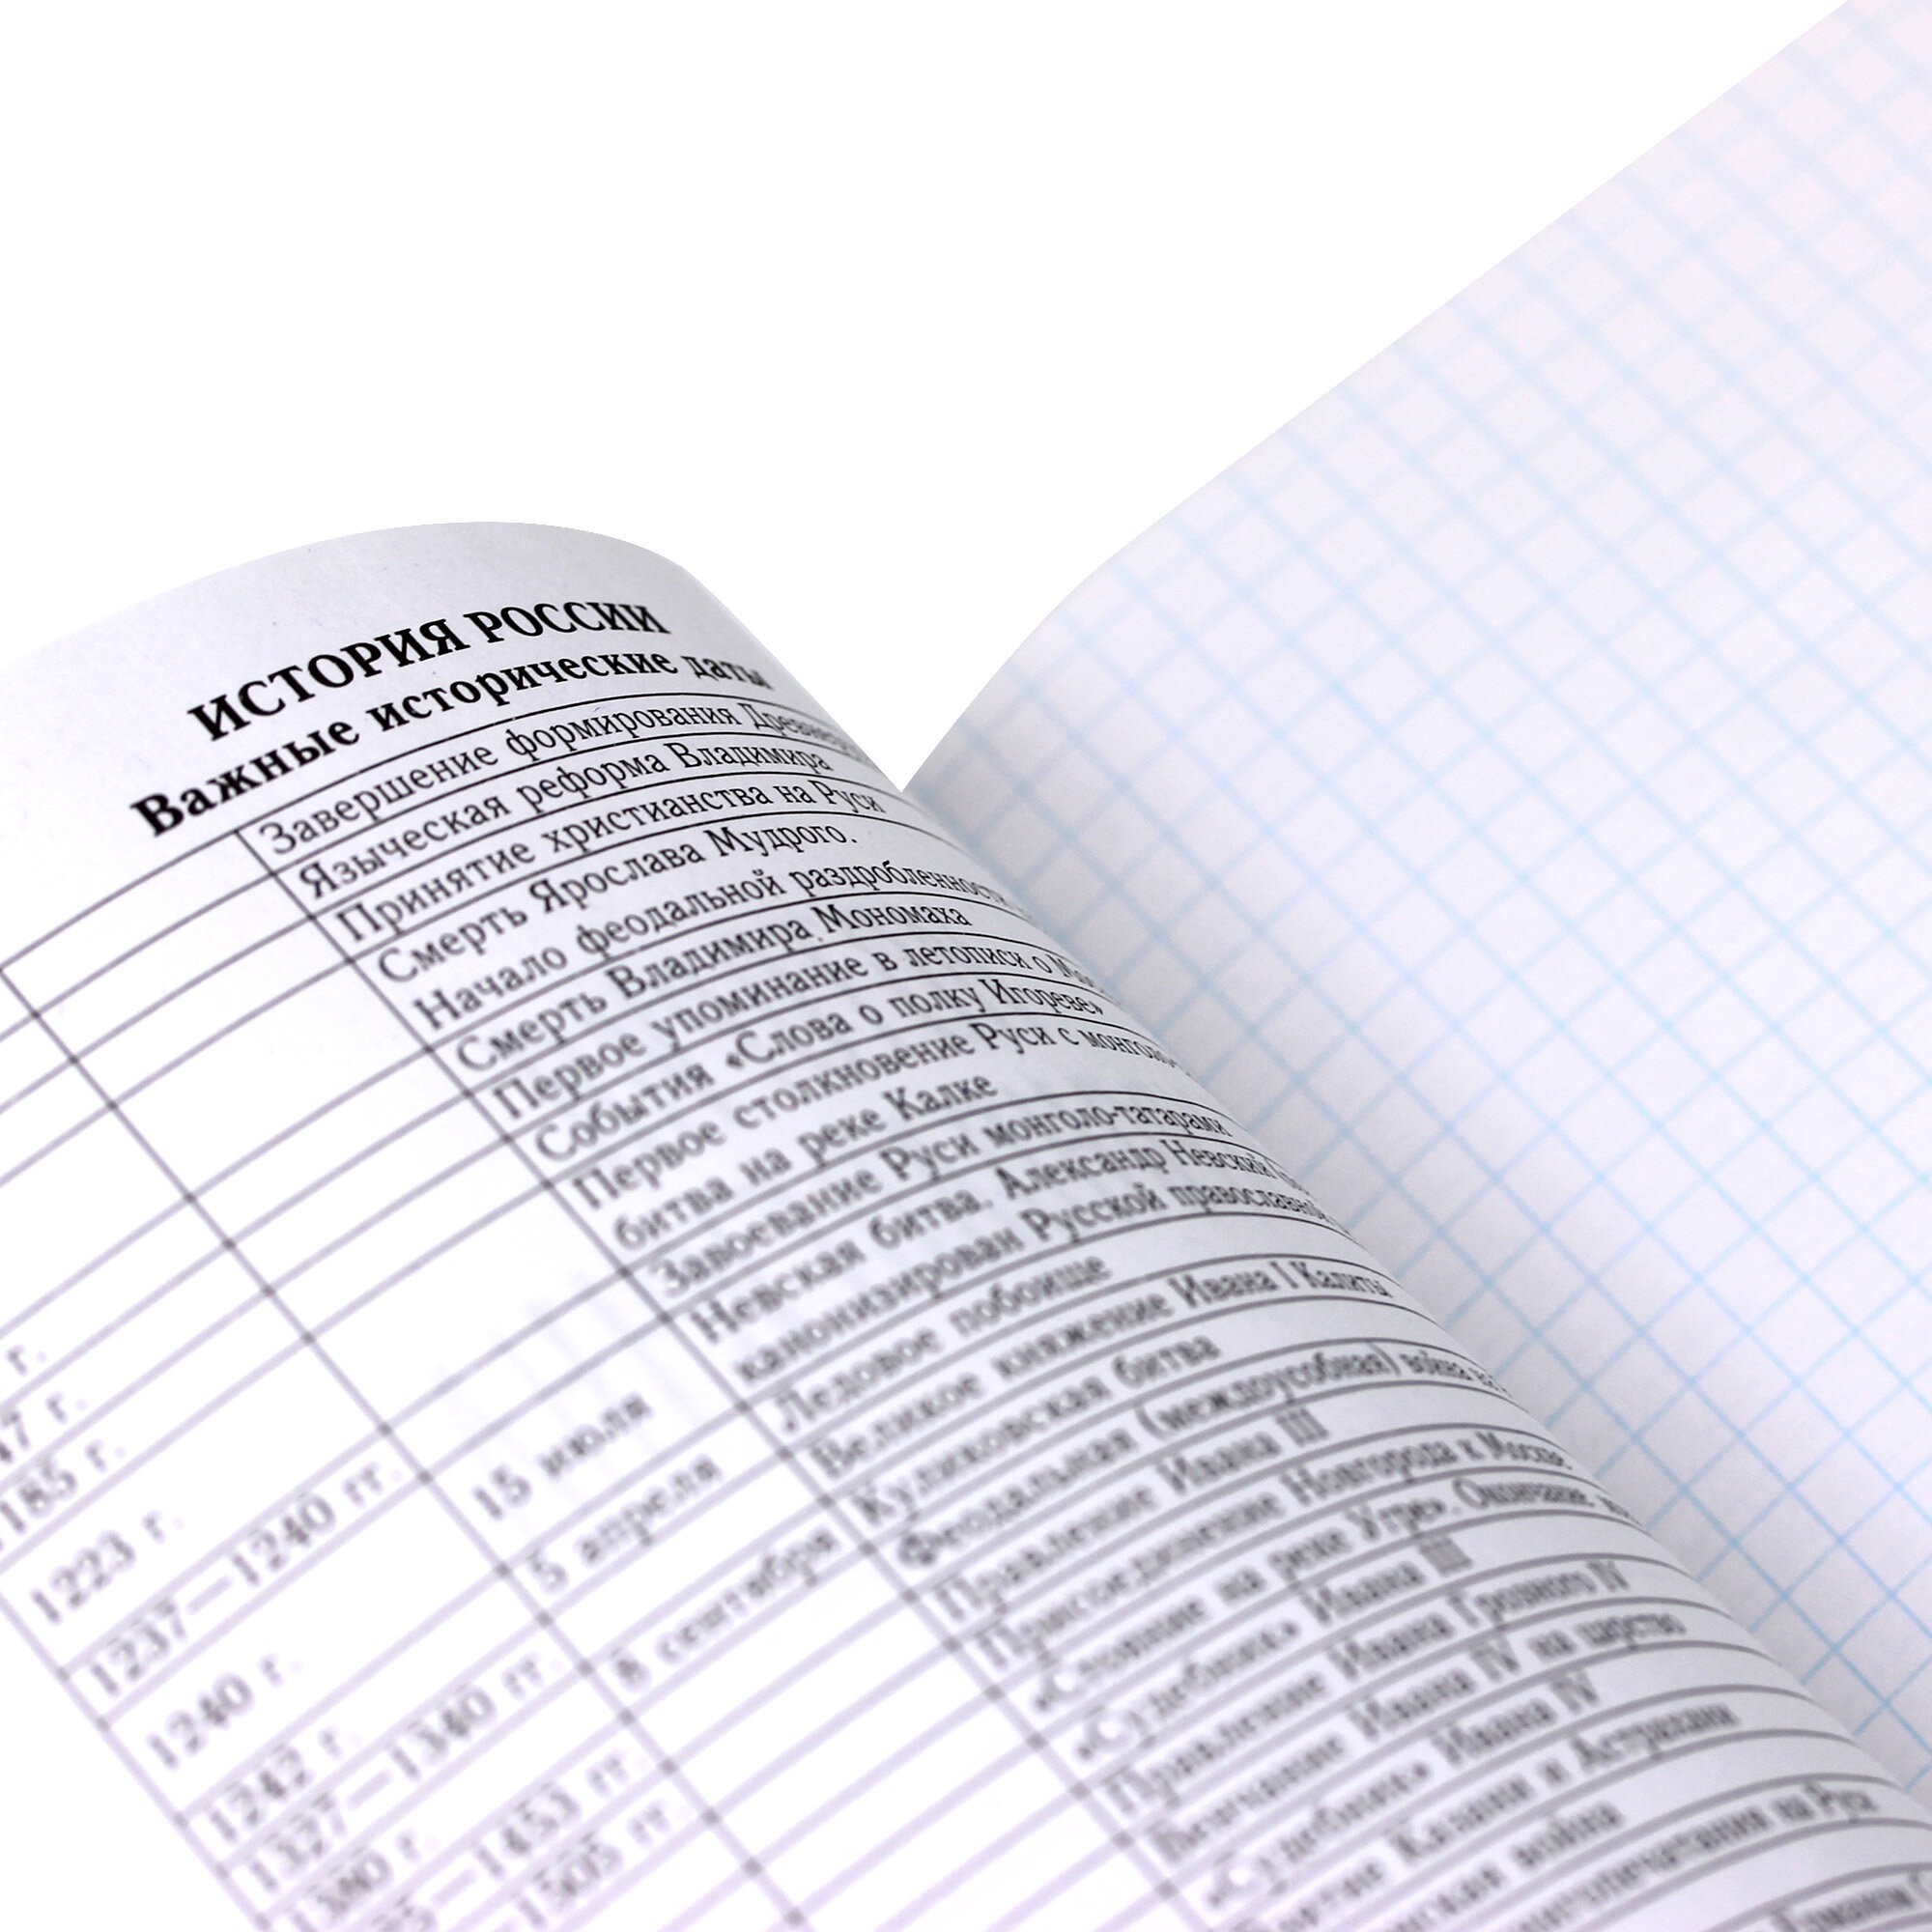 ИСТОРИЯ РОССИИ
Важные исторические даты
Завершение формирования
Языческая реформа Владимира
Принятие христианства на Руси
Смерть Ярослава Мудрого.
Начало феодальной раздробленности
Смерть Владимира Мономаха
Первое упоминание в летописи о
События «Слова о полку Игореве»
1223 г. Первое столкновение Руси с
битва на реке Калке
1237—1240 гг. Завоевание Руси монголо-татарами
1240 г. 15 июля Невская битва. Александр Невский
канонизирован Русской православной
1242 г. 5 апреля Ледовое побоище
1327—1340 гг. Великое княжение Ивана I Калиты
1380 г. 8 сентября Куликовская битва
Феодальная (междоусобная) война
Правление Ивана III
Присоединение Новгорода к Москве
«Стояние на реке Угре». Окончание
«Судебник» Ивана III
Правление Ивана Грозного IV
Венчание Ивана IV на царство
«Судебник» Ивана IV
Казани и Астрахани
война
на Руси